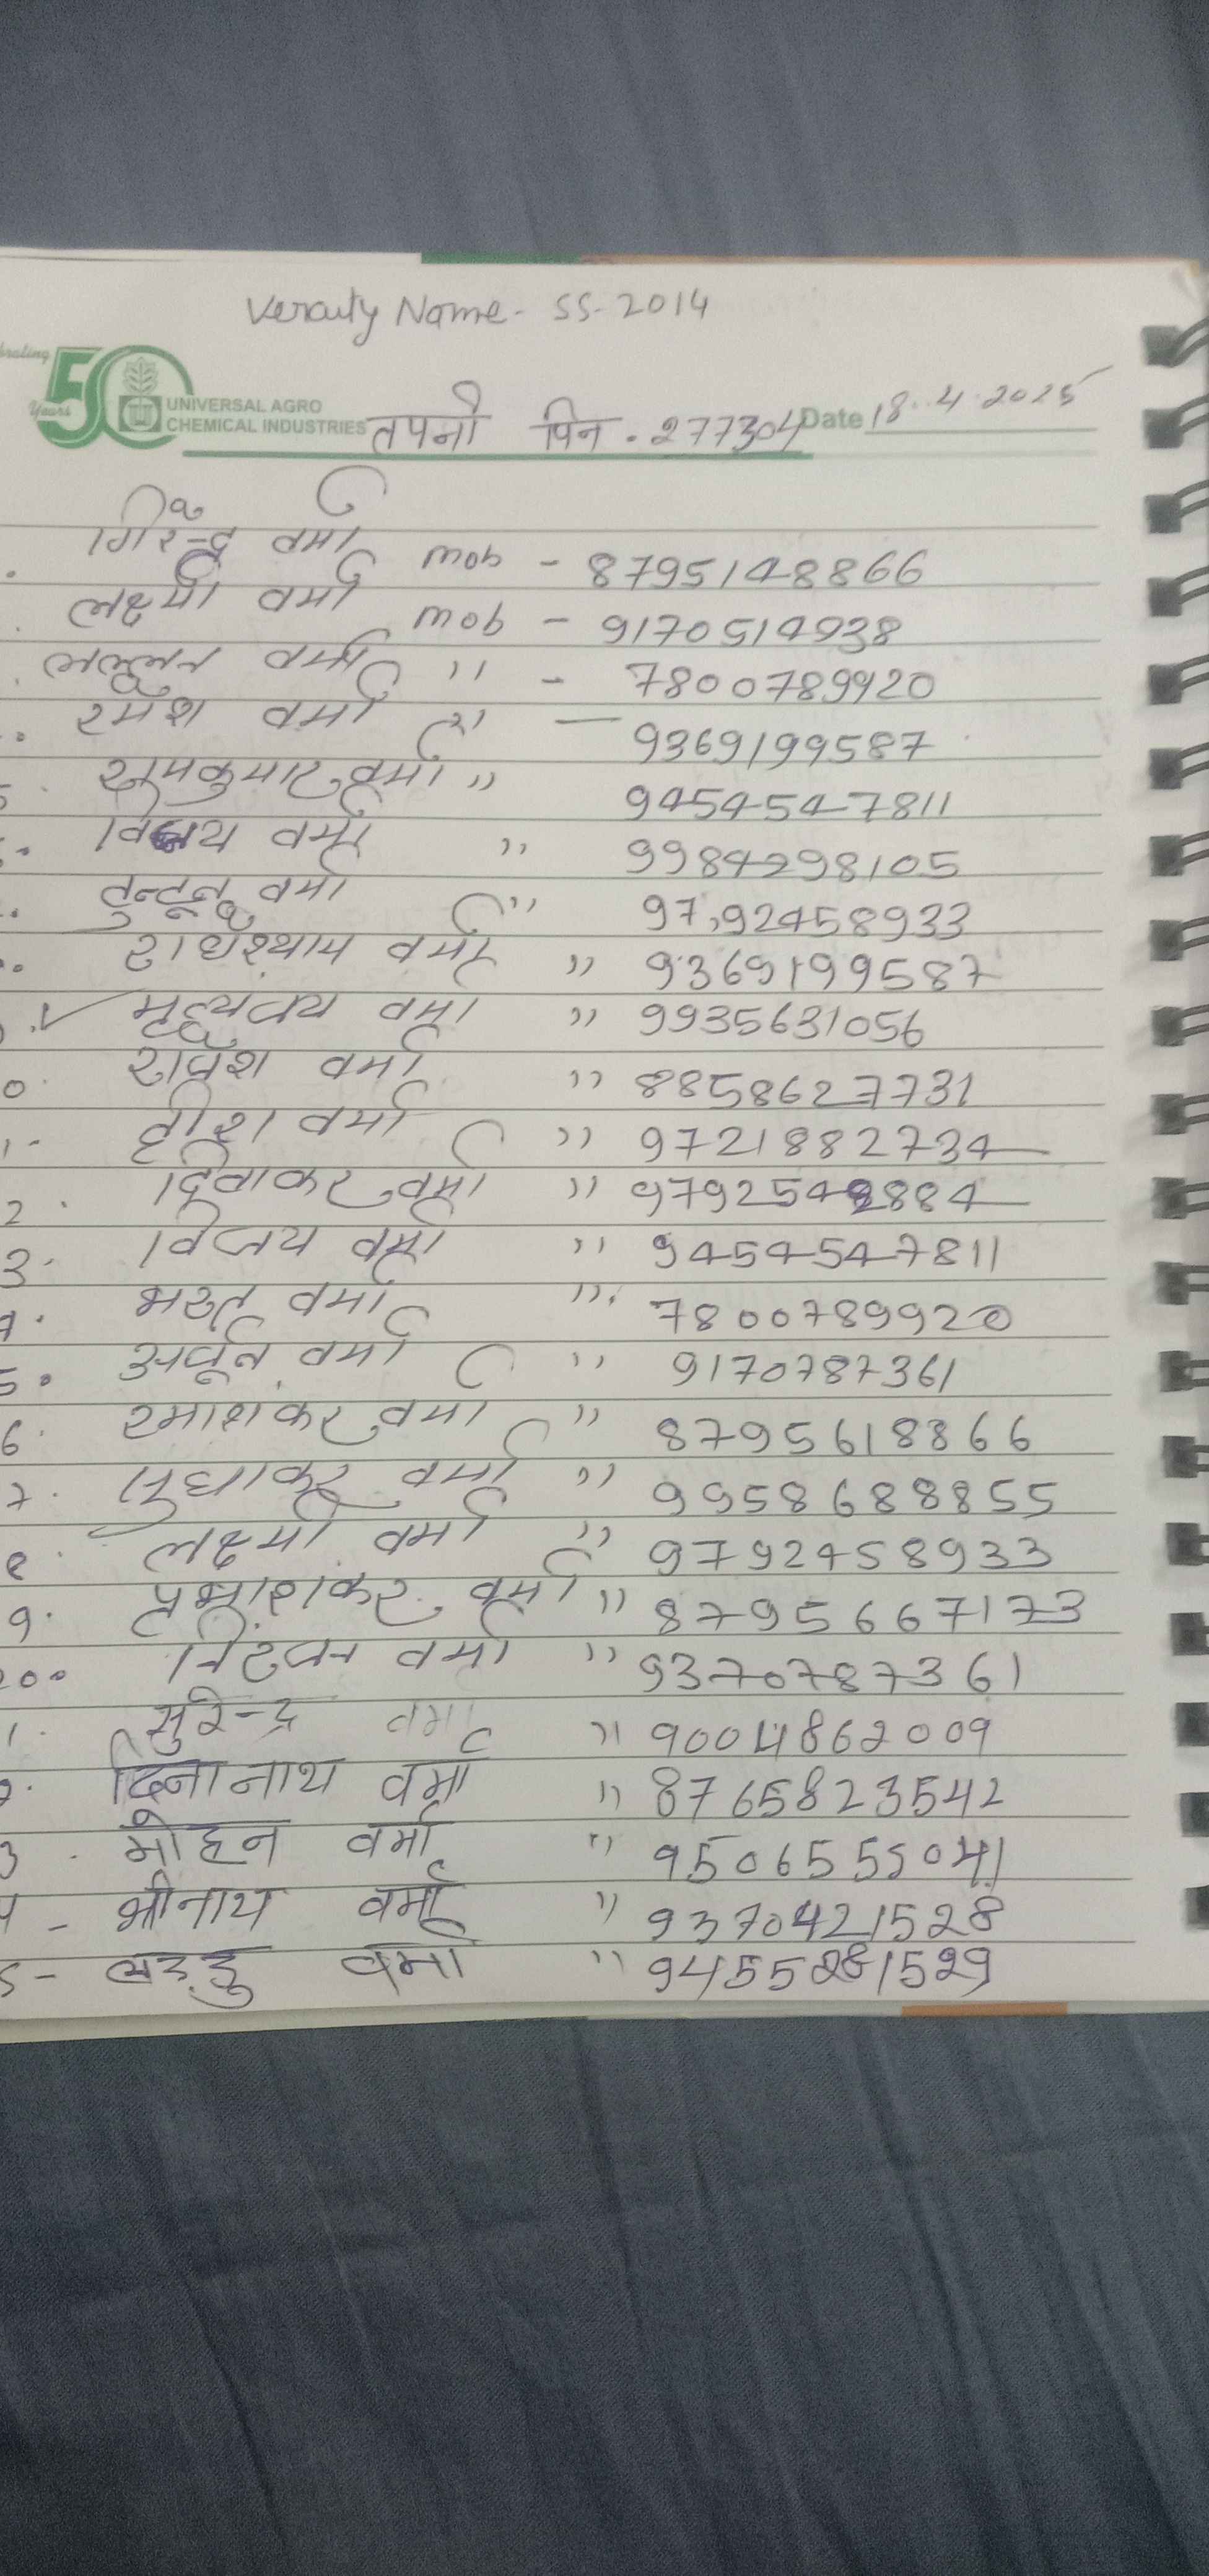 Veraity Name - SS-2014
Celebrating 50 Years
UNIVERSAL AGRO
CHEMICAL INDUSTRIES
तपनी पिन . 277304 Date 18.4.2025
गिरेन्द्र वर्मा mob - 8795148866
लक्ष्मी वर्मा mob - 9170514938
लल्लन वर्मा " - 7800789920
रमेश वर्मा " - 9369199587
5. रामकुमार वर्मा " 9454547811
विजय वर्मा " 9984298105
टुनटुन वर्मा " 97,92458933
राधेश्याम वर्मा " 9369199587
मृत्युंजय वर्मा " 9935631056
0. राकेश वर्मा " 8858627731
1- हरीश वर्मा " 9721882734
2. दिवाकर वर्मा " 9792548884
3. विजय वर्मा " 9454547811
4. भरत वर्मा " 7800789920
5. वर्मा " 9170787361
6. रमाशंकर वर्मा " 8795618866
7. सुधाकर वर्मा " 9958688855
8. लक्ष्मी वर्मा " 9792458933
9. प्रभाशंकर वर्मा " 8795667173
20. निरंजन वर्मा " 9370787361
1. सुरेन्द्र वर्मा " 9004862009
2. दिनानाथ वर्मा " 8765823542
3. मोहन वर्मा " 9506555041
4 - श्रीनाथ वर्मा " 9370421528
5 - लड्डु वर्मा " 9455281529